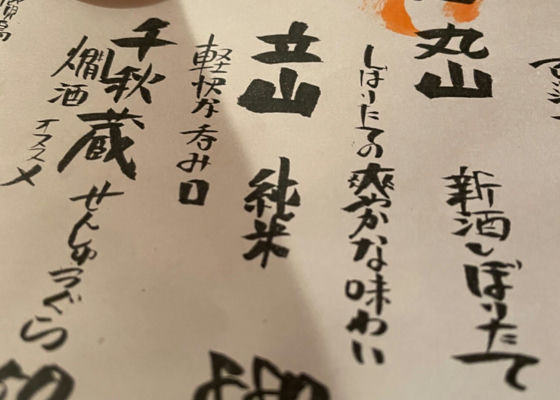 丸山 新酒しぼりたて
しぼりたての爽やかな味わい
立山 純米
軽快な呑み口
千秋蔵 せんしゅうぐら
燗酒オススメ